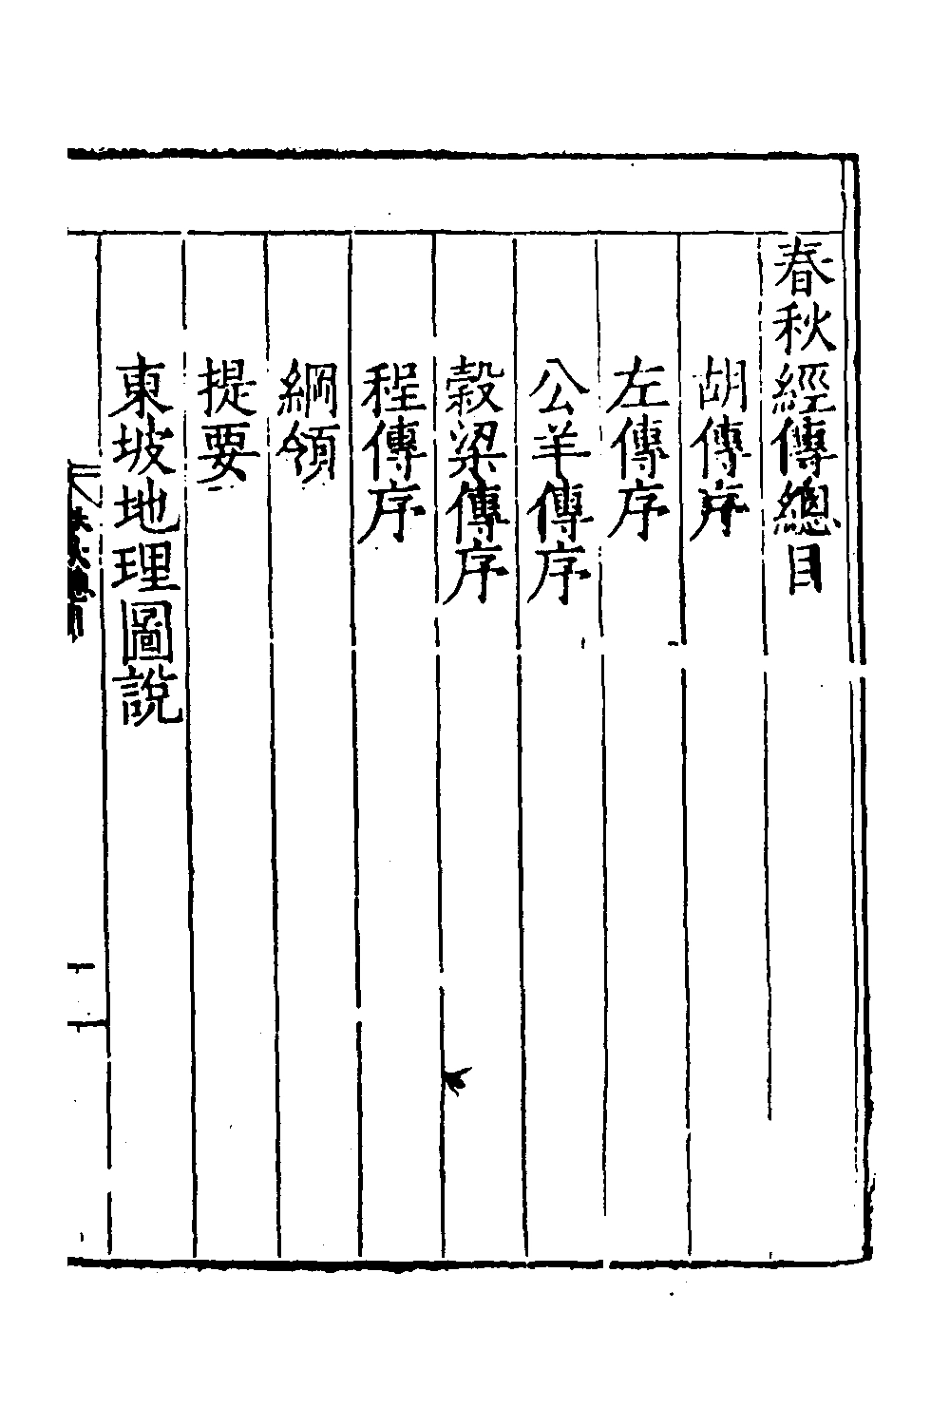 春秋經傳總目
胡傳序
左傳序
公羊傳序
穀梁傳序
程傳序
綱領
提要
東坡地理圖說